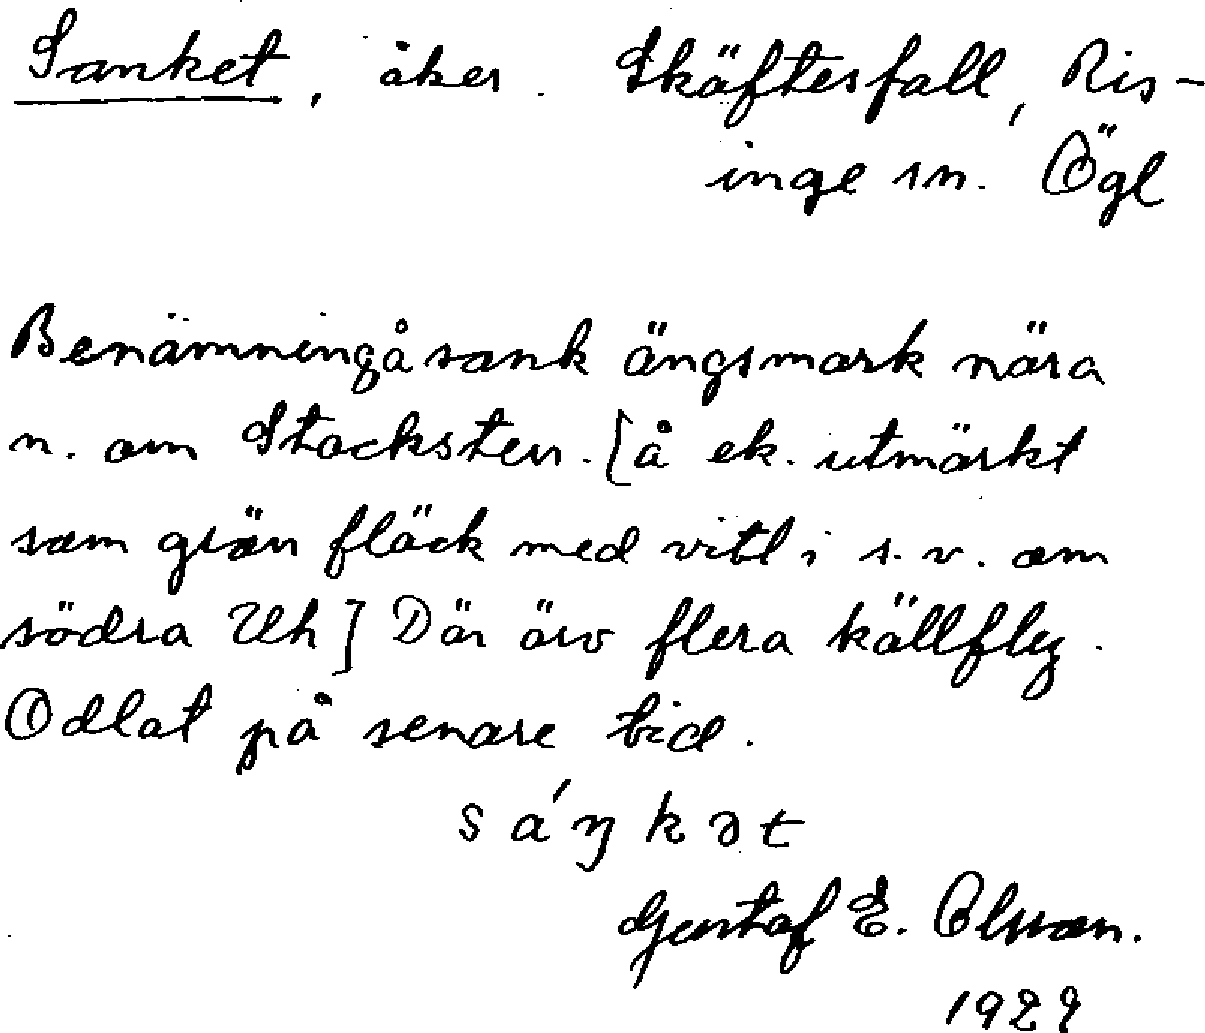 Sanket, åker. Skäftesfall, Ris-
inge sn. Ögl
Benämning å sank ängsmark nära
n. om Stocksten. [å ek. utmärkt
som grön fläck med vitt i s.v. om
södra Uh] Där äro flera källfly.
Odlat på senare tid.
sáŋkət
Gustaf E. Olsson.
1929